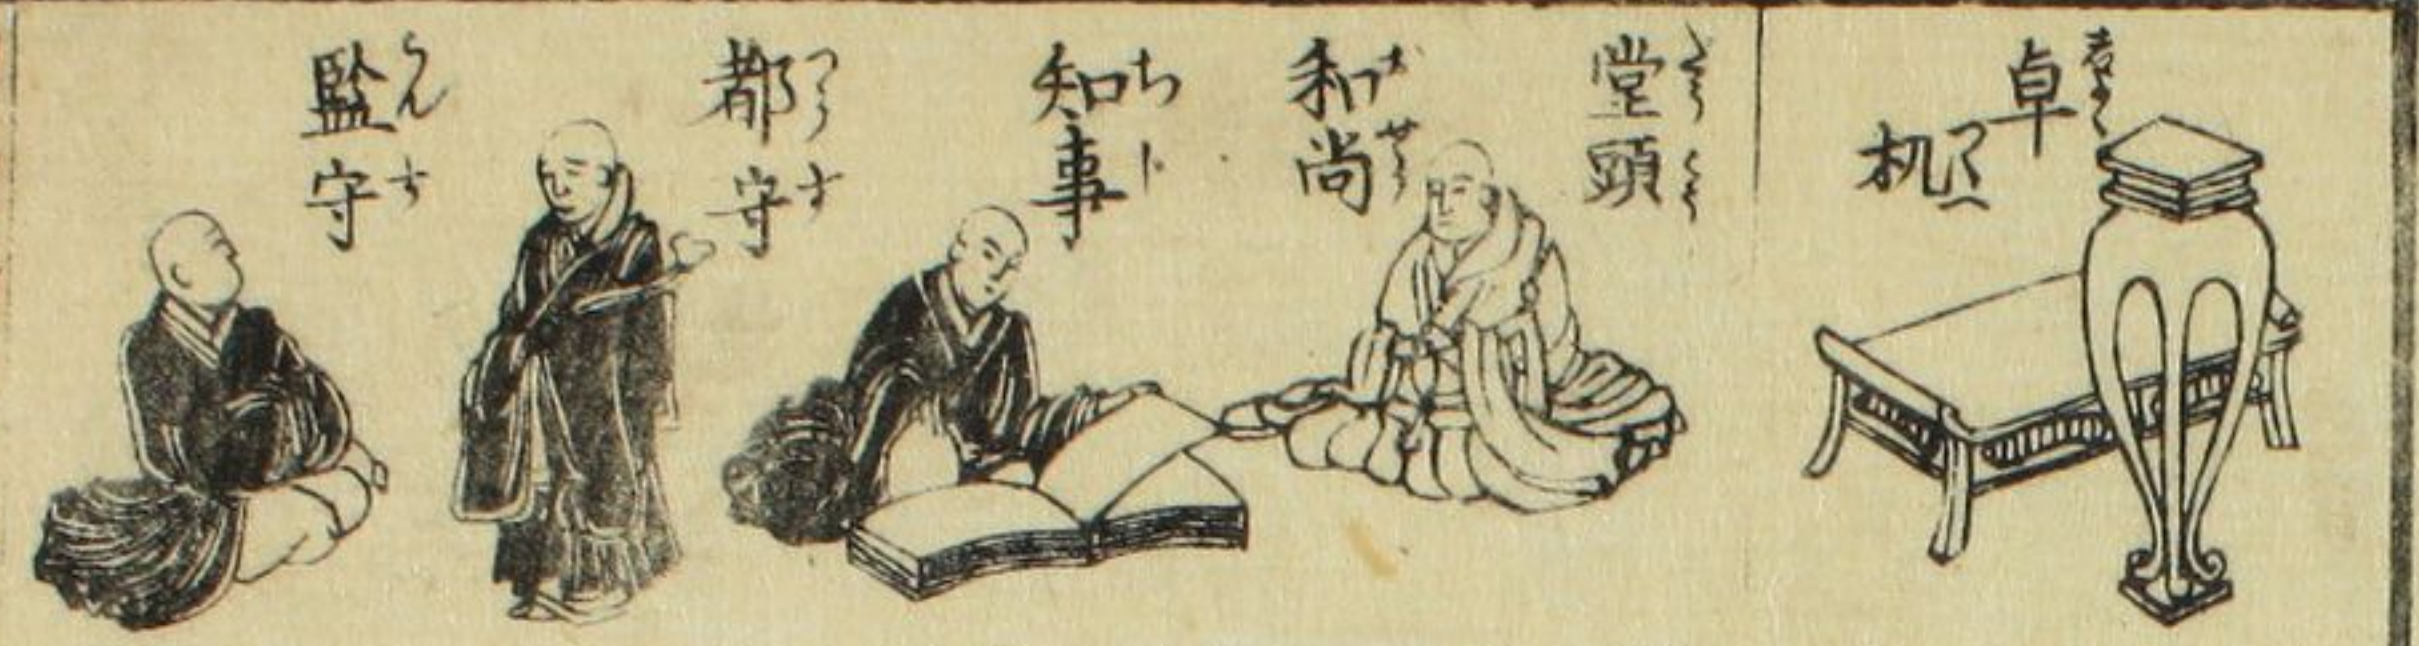 卓
しよく
机
つくへ
堂頭
和尚
おせう
知事
ちじ
都守
つうす
監守
かんす